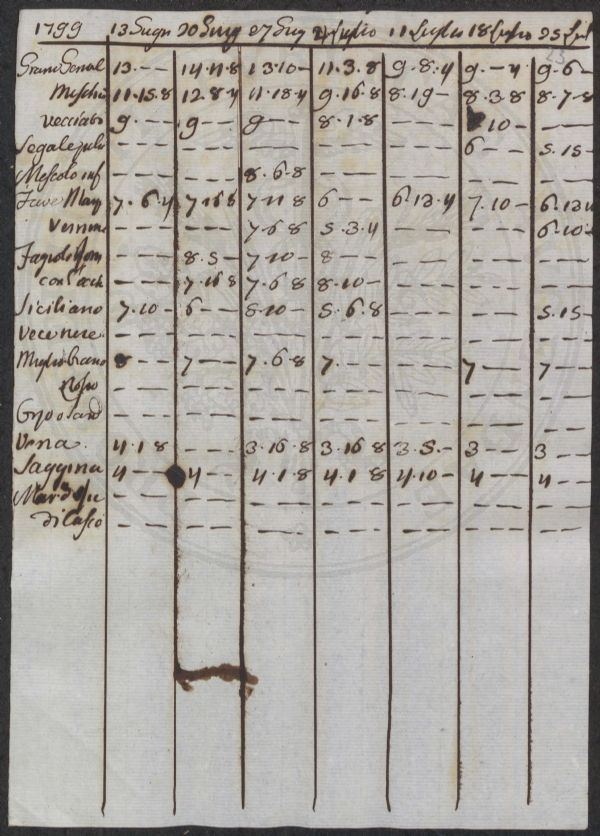 1799 13 Giug 20 Giug 27 Giug 4 Luglio 11 Luglio 18 Luglio 25 Lugl
Grano 13.-- 14.11.8 13.10- 11.3.8 9.8.4 9.-4 9.6-
Mischi 11.15.8 12.8.4 11.18.4 9.16.8 8.19- 8.3.8 8.7-8
Vecciato 9-- 9-- 9-- 8.1.8 --- 10- ---
Segale --- --- --- --- --- 6-- 5.15-
Mescolo inf --- --- 8.6-8 --- --- --- ---
Fave 7.6.4 7.16.8 7.11.8 6-- 6.13.4 7.10- 6.13.4
Vernine --- --- 7.6.8 5.3.4 --- --- 6.10-
Fagioli --- 8.5- 7.10- 8-- --- --- ---
con l'och --- 7.16.8 7.6.8 8.10- --- --- ---
Siciliano 7.10- 6-- 5.10- 5.6.8 --- --- 5.15-
Vece nere --- --- --- --- --- --- ---
Miglio 8-- 7-- 7.6-8 7.-- --- 7-- 7--
--- --- --- --- --- --- ---
--- --- --- --- --- --- ---
Vena. 4.1.8 --- 3.16.8 3.16.8 3.5.- 3-- 3--
Saggina 4-- 4-- 4.1.8 4.1.8 4.10- 4-- 4--
--- --- --- --- --- --- ---
--- --- --- --- --- --- ---